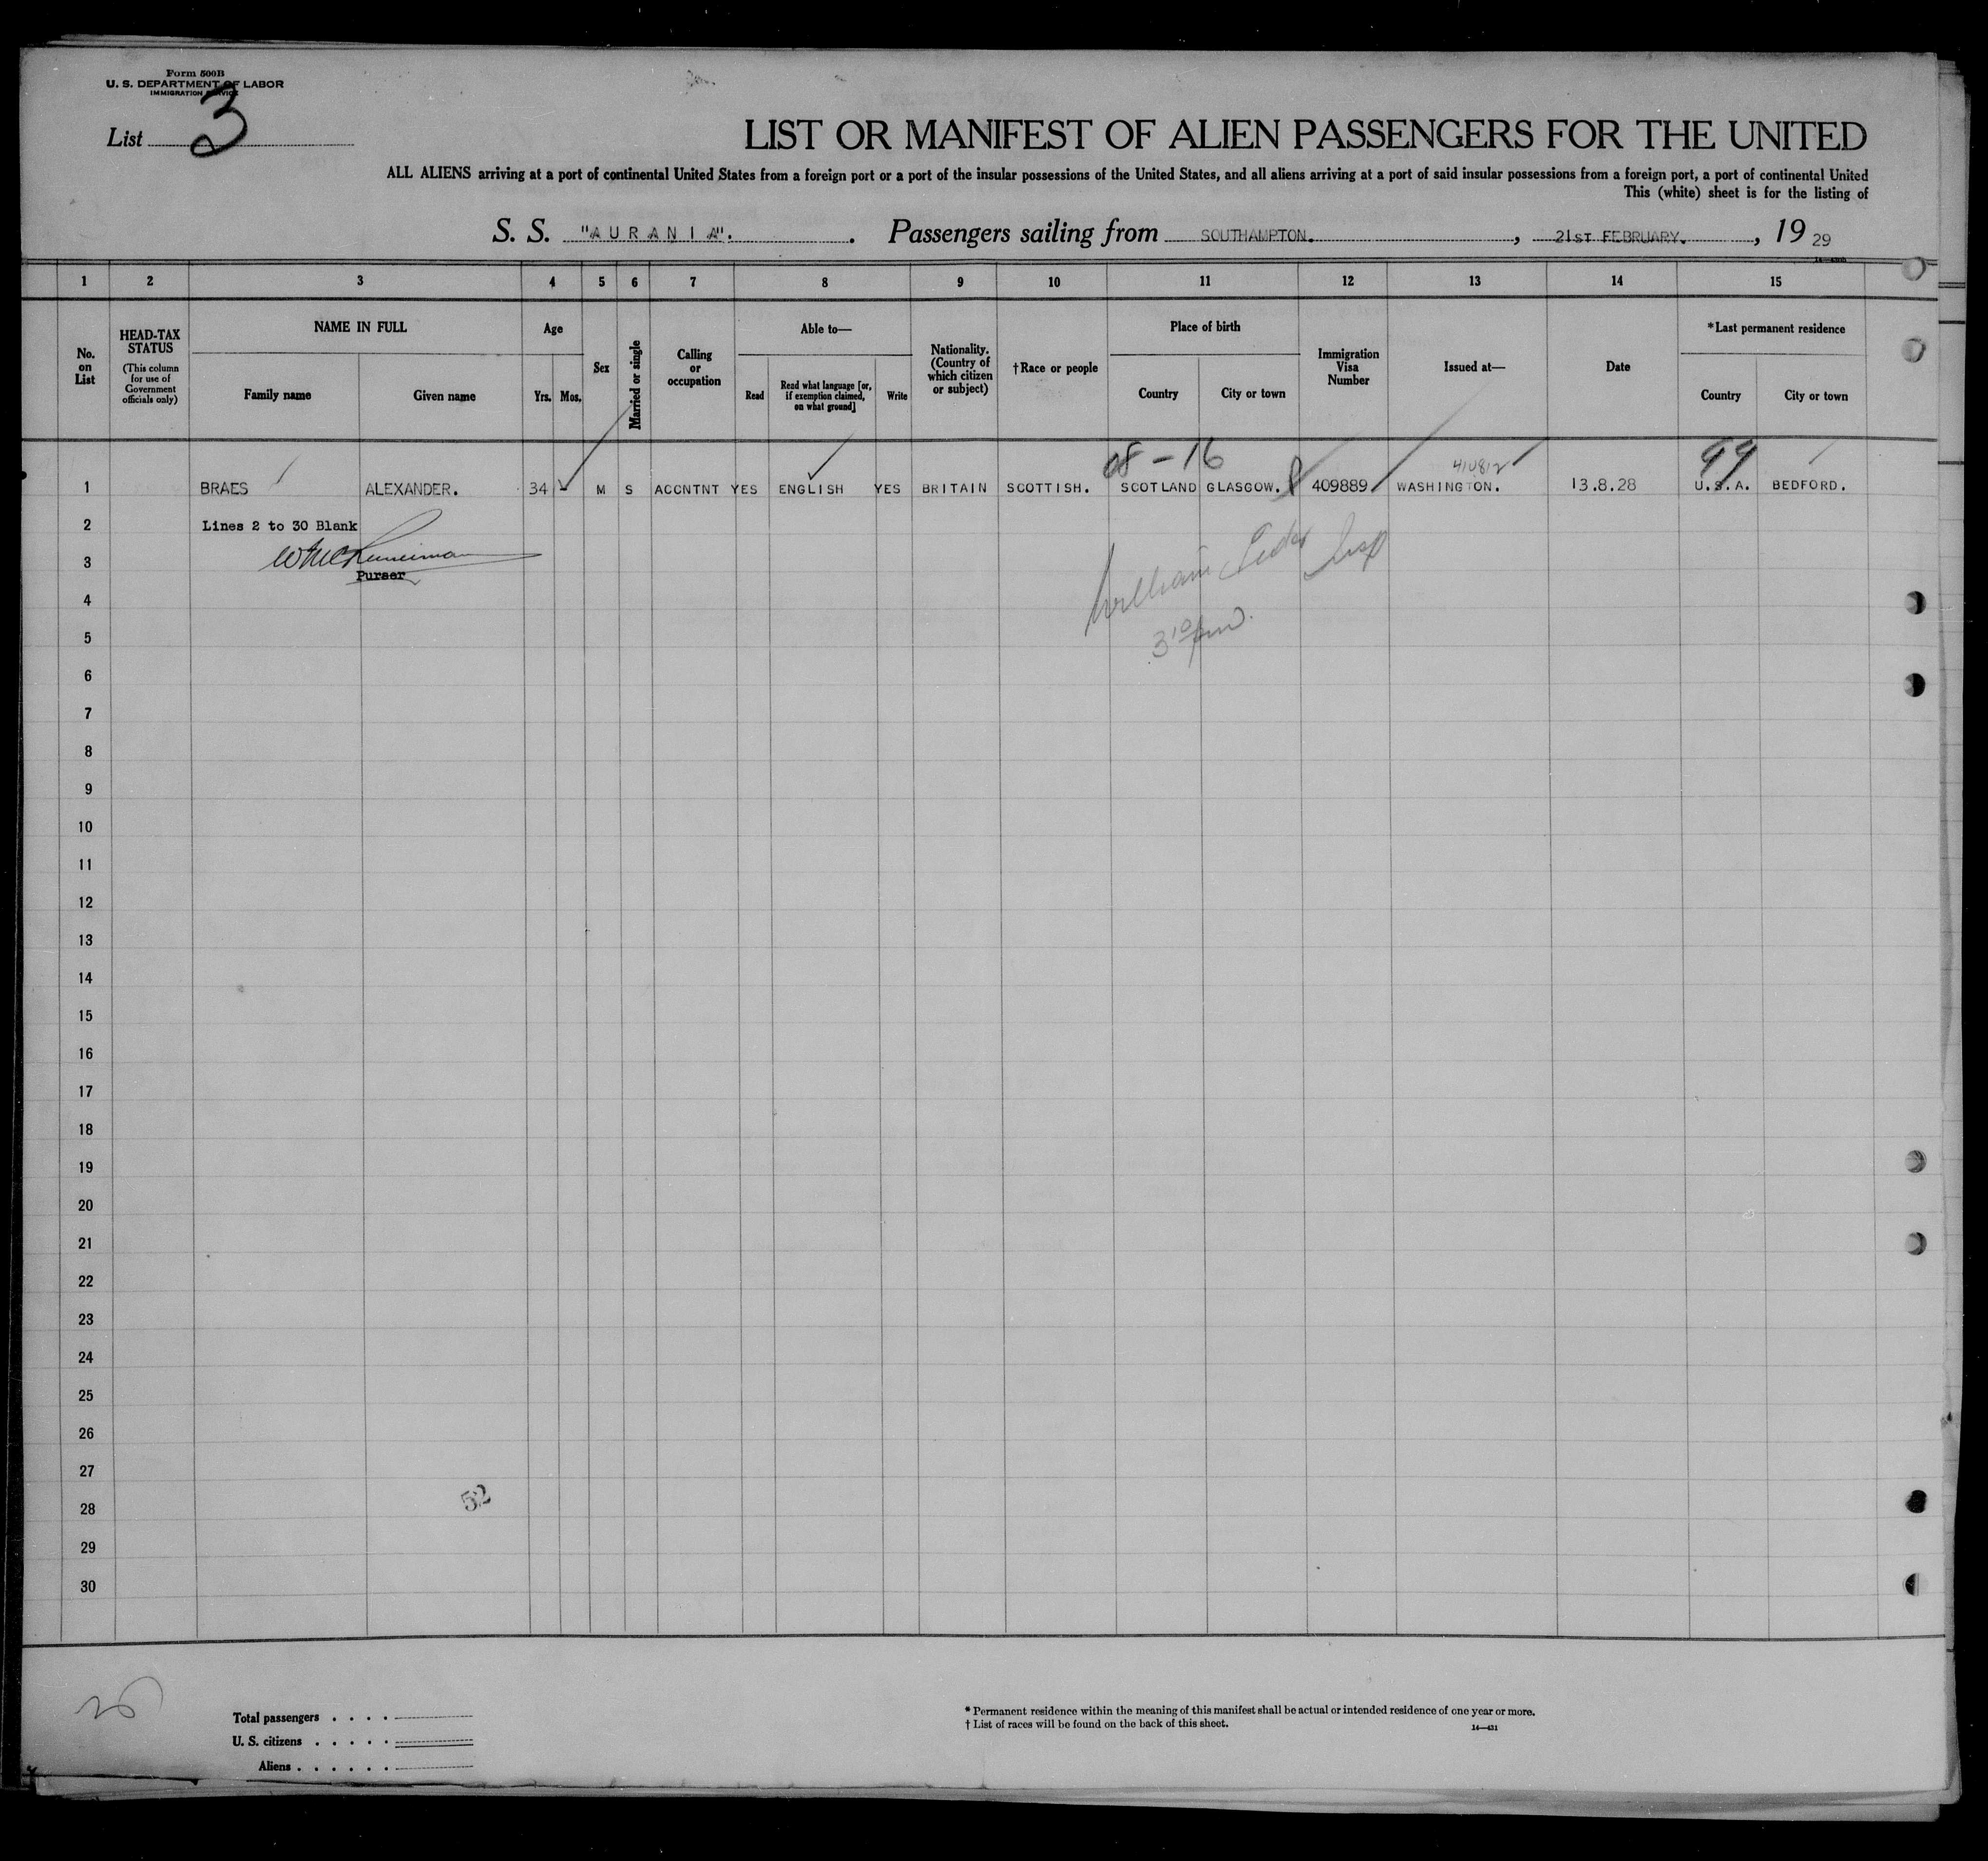 Form 500B
U. S. DEPARTMENT OF LABOR
IMMIGRATION SERVICE
List 3
LIST OR MANIFEST OF ALIEN PASSENGERS FOR THE UNITED
ALL ALIENS arriving at a port of continental United States from a foreign port or a port of the insular possessions of the United States, and all aliens arriving at a port of said insular possessions from a foreign port, a port of continental United
This (white) sheet is for the listing of
S. S. "AURANIA". Passengers sailing from SOUTHAMPTON. , 21ST FEBRUARY. , 19 29
1 2 3 4 5 6 7 8 9 10 11 12 13 14 15
No. on List
HEAD-TAX STATUS
(This column for use of Government officials only)
NAME IN FULL
Family name Given name
Age
Yrs. Mos.
Sex
Married or single
Calling or occupation
Able to—
Read
Read what language [or, if exemption claimed, on what ground]
Write
Nationality. (Country of which citizen or subject)
†Race or people
Place of birth
Country City or town
Immigration Visa Number
Issued at—
Date
*Last permanent residence
Country City or town
08 - 16 99
410812
1 BRAES ALEXANDER. 34 - M S ACCNTNT YES ENGLISH YES BRITAIN SCOTTISH. SCOTLAND GLASGOW. 409889 WASHINGTON. 13.8.28 U.S.A. BEDFORD.
2 Lines 2 to 30 Blank
3 William Insp
Purser
4
5 3 10 pm
6
7
8
9
10
11
12
13
14
15
16
17
18
19
20
21
22
23
24
25
26
27
28 52
29
30
Total passengers . . . .
U. S. citizens . . . . .
Aliens . . . . . .
* Permanent residence within the meaning of this manifest shall be actual or intended residence of one year or more.
† List of races will be found on the back of this sheet.
14—431